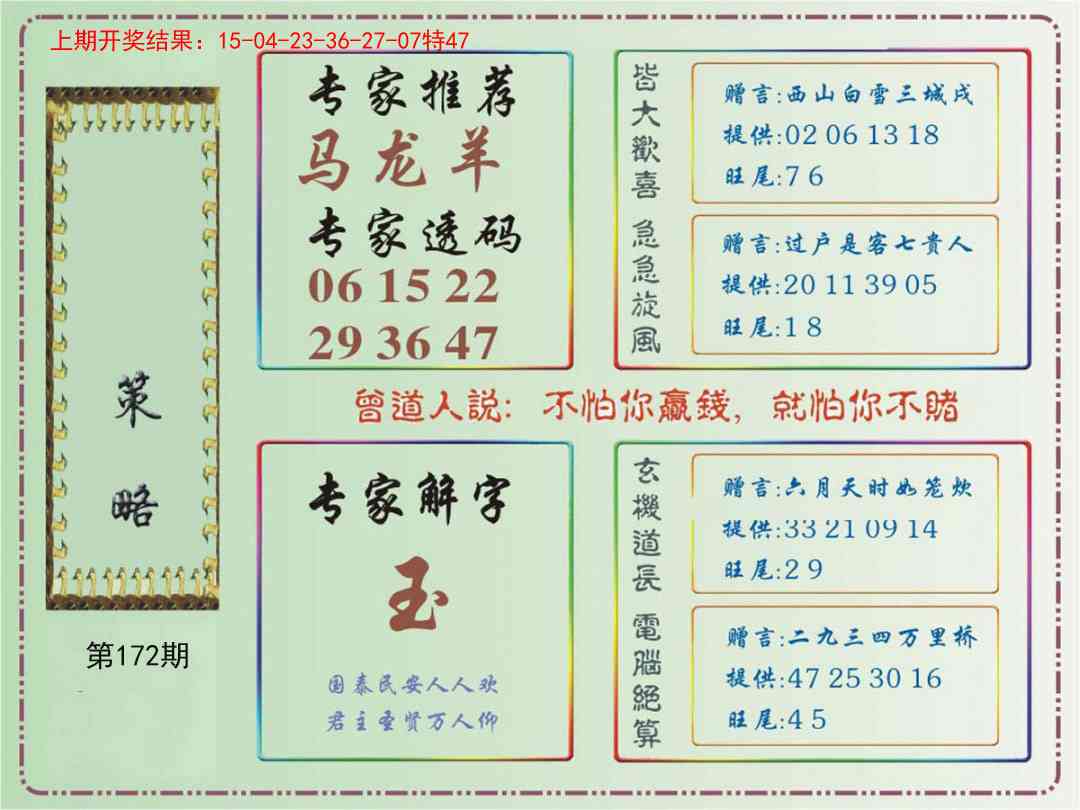 上期开奖结果：15-04-23-36-27-07特47
策略
第172期
专家推荐
马龙羊
专家透码
06 15 22
29 36 47
皆大歡喜
赠言:西山白雪三城戍
提供:02 06 13 18
旺尾:7 6
急急旋風
赠言:过户是客七貴人
提供:20 11 39 05
旺尾:1 8
曾道人説：不怕你贏錢，就怕你不賭
专家解字
玉
国泰民安人人欢
君主圣贤万人仰
玄機道長
赠言:六月天时如笼炊
提供:33 21 09 14
旺尾:2 9
電腦絕算
赠言:二九三四万里桥
提供:47 25 30 16
旺尾:4 5